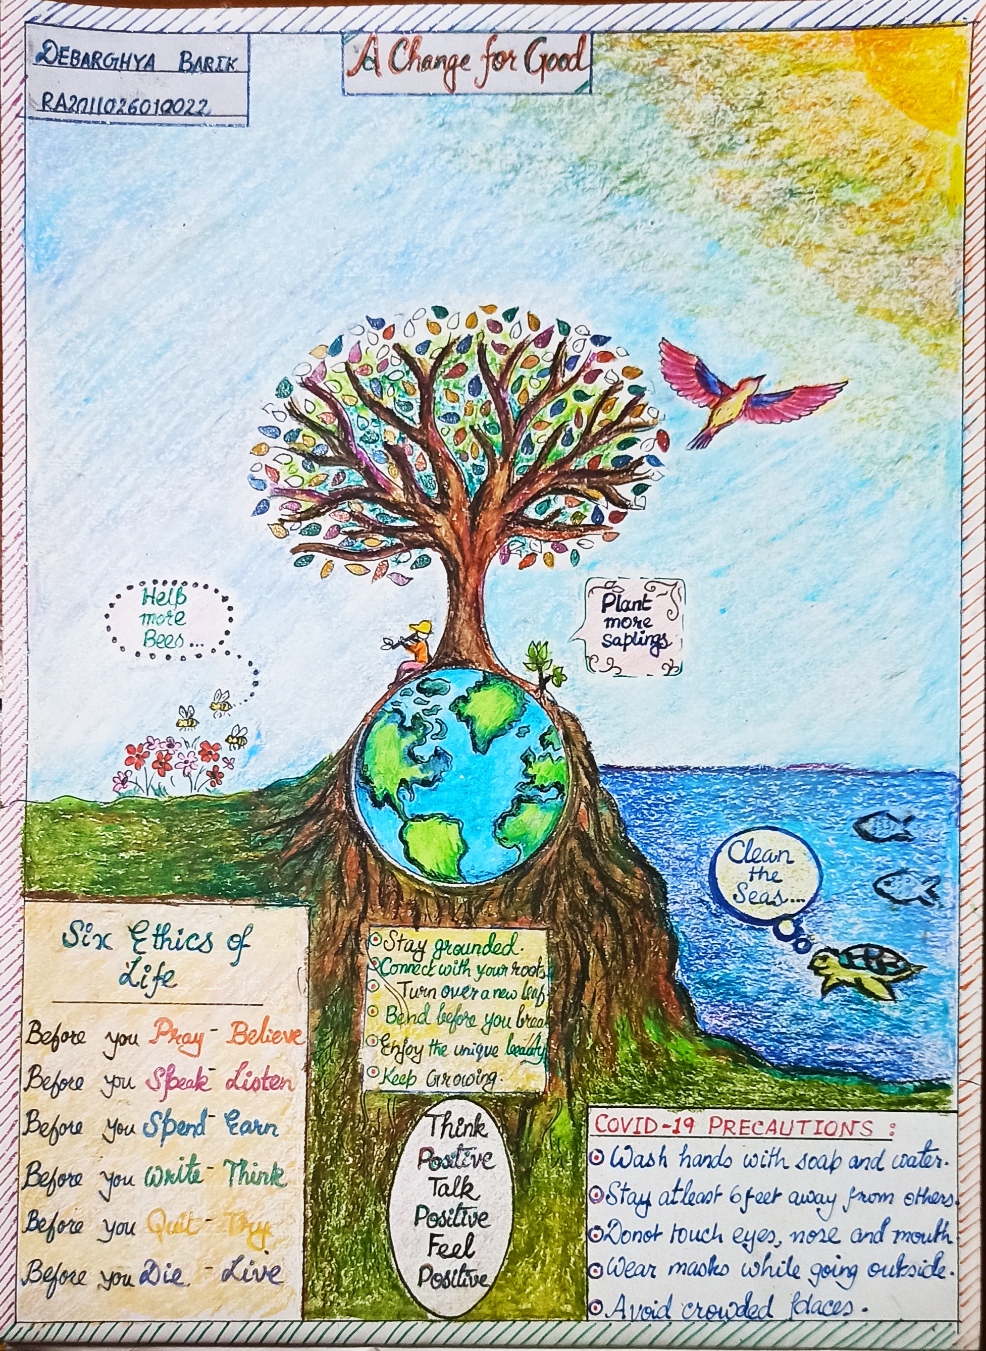 DEBARGHYA BARIK
RA2011026010022
A Change for Good
Help
more
Bees...
Plant
more
saplings
Clean
the
Seas...
Six Ethics of
Life
Before you Pray - Believe
Before you Speak - Listen
Before you Spend - Earn
Before you Write - Think
Before you Quit - Try
Before you Die - Live
Stay grounded.
Connect with your roots
Turn over a new leaf
Bend before you break
Enjoy the unique beauty
Keep Growing.
Think
Positive
Talk
Positive
Feel
Positive
COVID-19 PRECAUTIONS :
Wash hands with soap and water.
Stay atleast 6 feet away from others.
Donot touch eyes, nose and mouth
Wear masks while going outside.
Avoid crowded places.